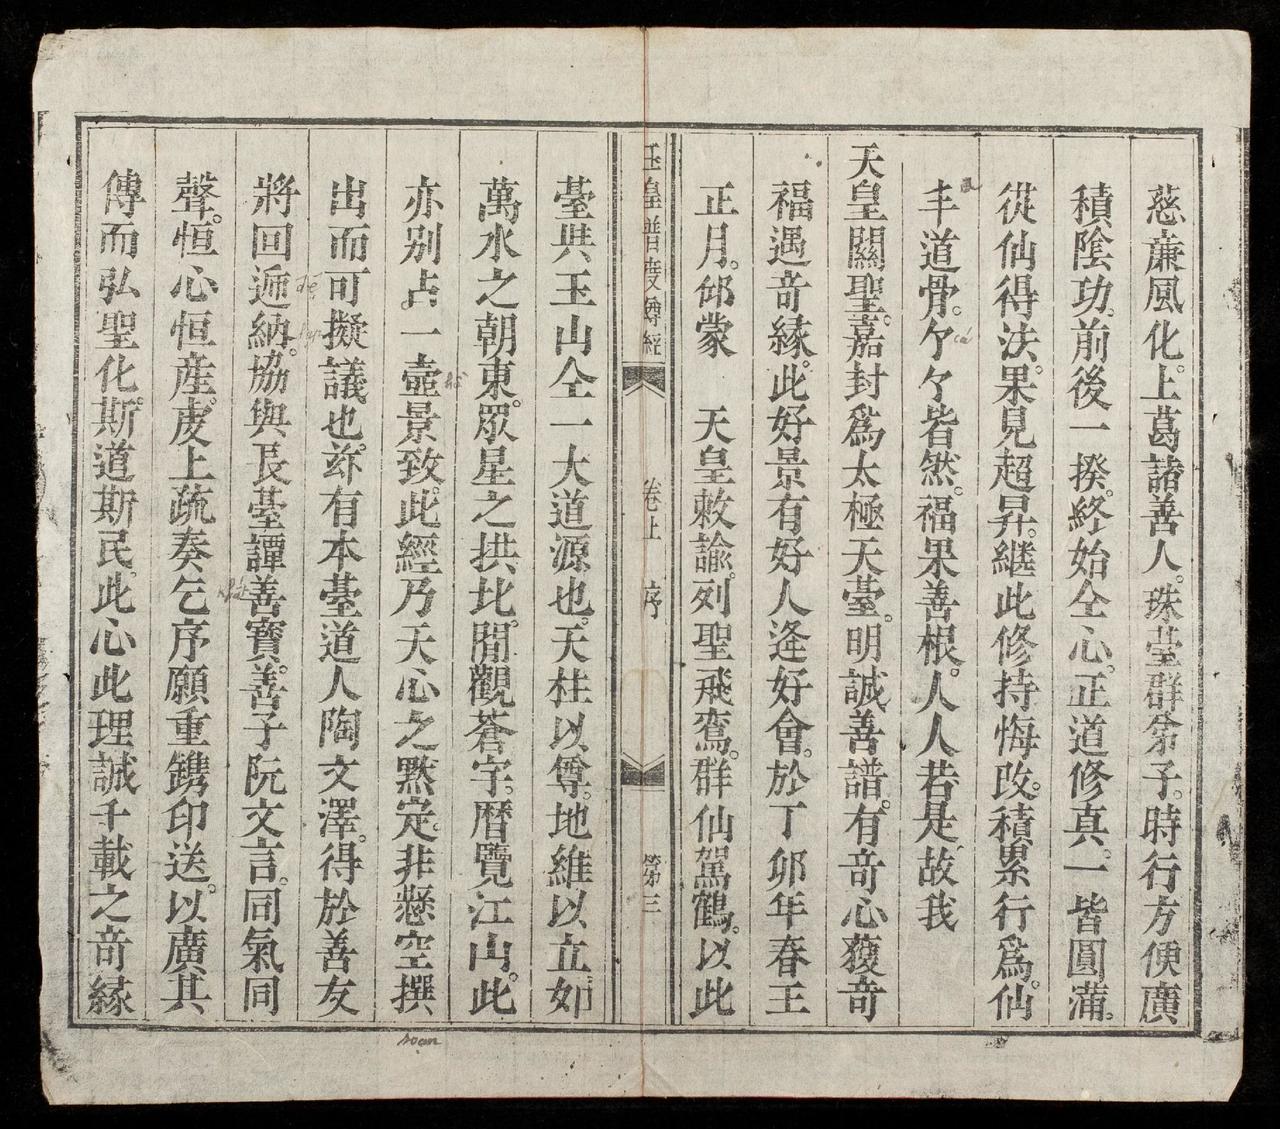 慈廉風化。上葛諸善人。珠臺群弟子。時行方便廣
積陰功。前後一揆。終始全心。正道修真。一皆圓蒲。
從仙得法。果見超昇。繼此修持悔改。積累行爲。仙
丰道骨。个个皆然。福果善根。人人若是。故我
天皇關聖。嘉封爲太極天臺。明誠善譜。有竒心獲竒
福遇竒緣。此好景有好人逢好會。於丁卯年春王
正月。卹蒙 天皇敕諭。列聖飛鸞。群仙駕鶴。以此
玉皇普度尊經 卷上 序 第三
臺與玉山全一大道源也。天柱以尊。地維以立。如
萬水之朝東。眾星之拱北。閒觀蒼宇。暦覽江山。此
亦别占一壺景致。此經乃天心之默定。非懸空撰
出而可擬議也。茲有本臺道人陶文澤。得於善友
將回遞納。協與長臺譚善寶。善子阮文言。同氣同
聲。恒心恒産。虔上疏奏乞序願重鐫印送。以廣其
傳而弘聖化。斯道斯民。此心此理。誠千載之竒緣
cá
soạn